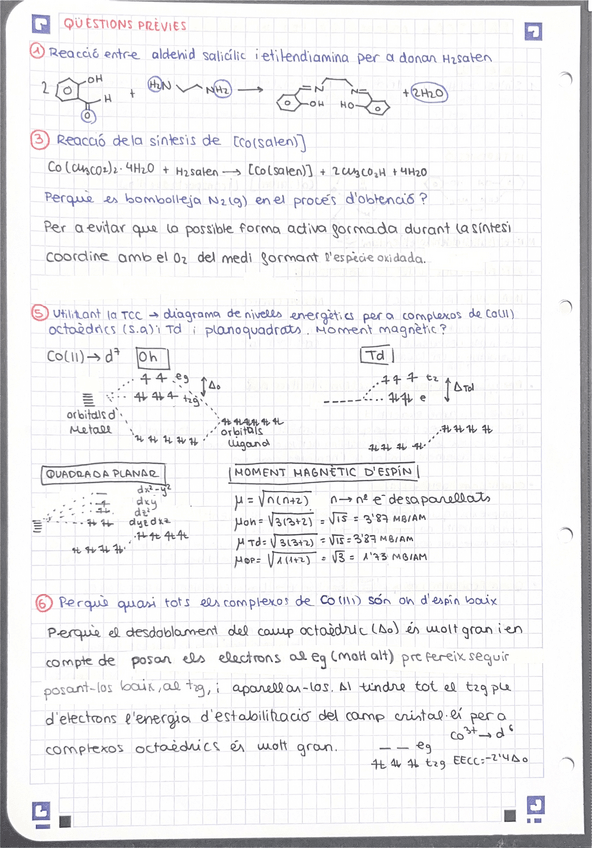 QÜESTIONS PRÈVIES
1 Reacció entre aldehid salicílic i etilendiamina per a donar H2salen
2 OH H O + H2N NH2 → N N OH HO + 2H2O
3 Reacció de la síntesis de [Co(salen)]
Co(CH3CO2)2·4H2O + H2salen → [Co(salen)] + 2CH3CO2H + 4H2O
Perquè es bombolleja N2(g) en el procés d'obtenció?
Per a evitar que la possible forma activa formada durant la síntesi
coordine amb el O2 del medi formant l'espècie oxidada.
5 Utilitzant la TCC → diagrama de nivells energètics per a complexos de Co(II)
octaèdrics (S.a) i Td i planoquadrats. Moment magnètic?
Co(II) → d7 Oh Td
eg Δo t2g
t2 ΔTd e
orbitals d
Metall
orbitals
lligand
QUADRADA PLANAR
dx²-y²
dxy
dz²
dyz dxz
MOMENT MAGNÈTIC D'ESPÍN
μ = √n(n+2) n → nº e- desaparellats
μOh = √3(3+2) = √15 = 3'87 MB/AM
μTd = √3(3+2) = √15 = 3'87 MB/AM
μQP = √1(1+2) = √3 = 1'73 MB/AM
6 Perquè quasi tots els complexos de Co(III) són oh d'espín baix
Perquè el desdoblament del camp octaèdric (Δo) és molt gran i en
compte de posar els electrons al eg (molt alt) prefereix seguir
posant-los baix, al t2g, i aparellar-los. Al tindre tot el t2g ple
d'electrons l'energia d'estabilització del camp cristal·lí per a
complexos octaèdrics és molt gran.
Co3+ → d6
eg
t2g EECC = -2'4Δo